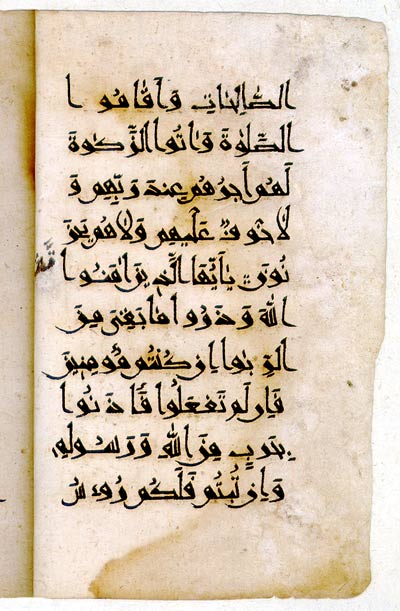 الصَّلِحَٰتِ وَأَقَامُوا
الصَّلَوٰةَ وَءَاتُوا الزَّكَوٰةَ
لَهُمْ أَجْرُهُمْ عِندَ رَبِّهِمْ وَ
لَا خَوْفٌ عَلَيْهِمْ وَلَا هُمْ يَحْزَ
نُونَ يَٰأَيُّهَا الَّذِينَ ءَامَنُوا
اللَّهَ وَذَرُوا مَا بَقِيَ مِنَ
الرِّبَوا إِن كُنتُم مُّؤْمِنِينَ
فَإِن لَّمْ تَفْعَلُوا فَأْذَنُوا
بِحَرْبٍ مِّنَ اللَّهِ وَرَسُولِهِ
وَإِن تُبْتُمْ فَلَكُمْ رُءُوسُ